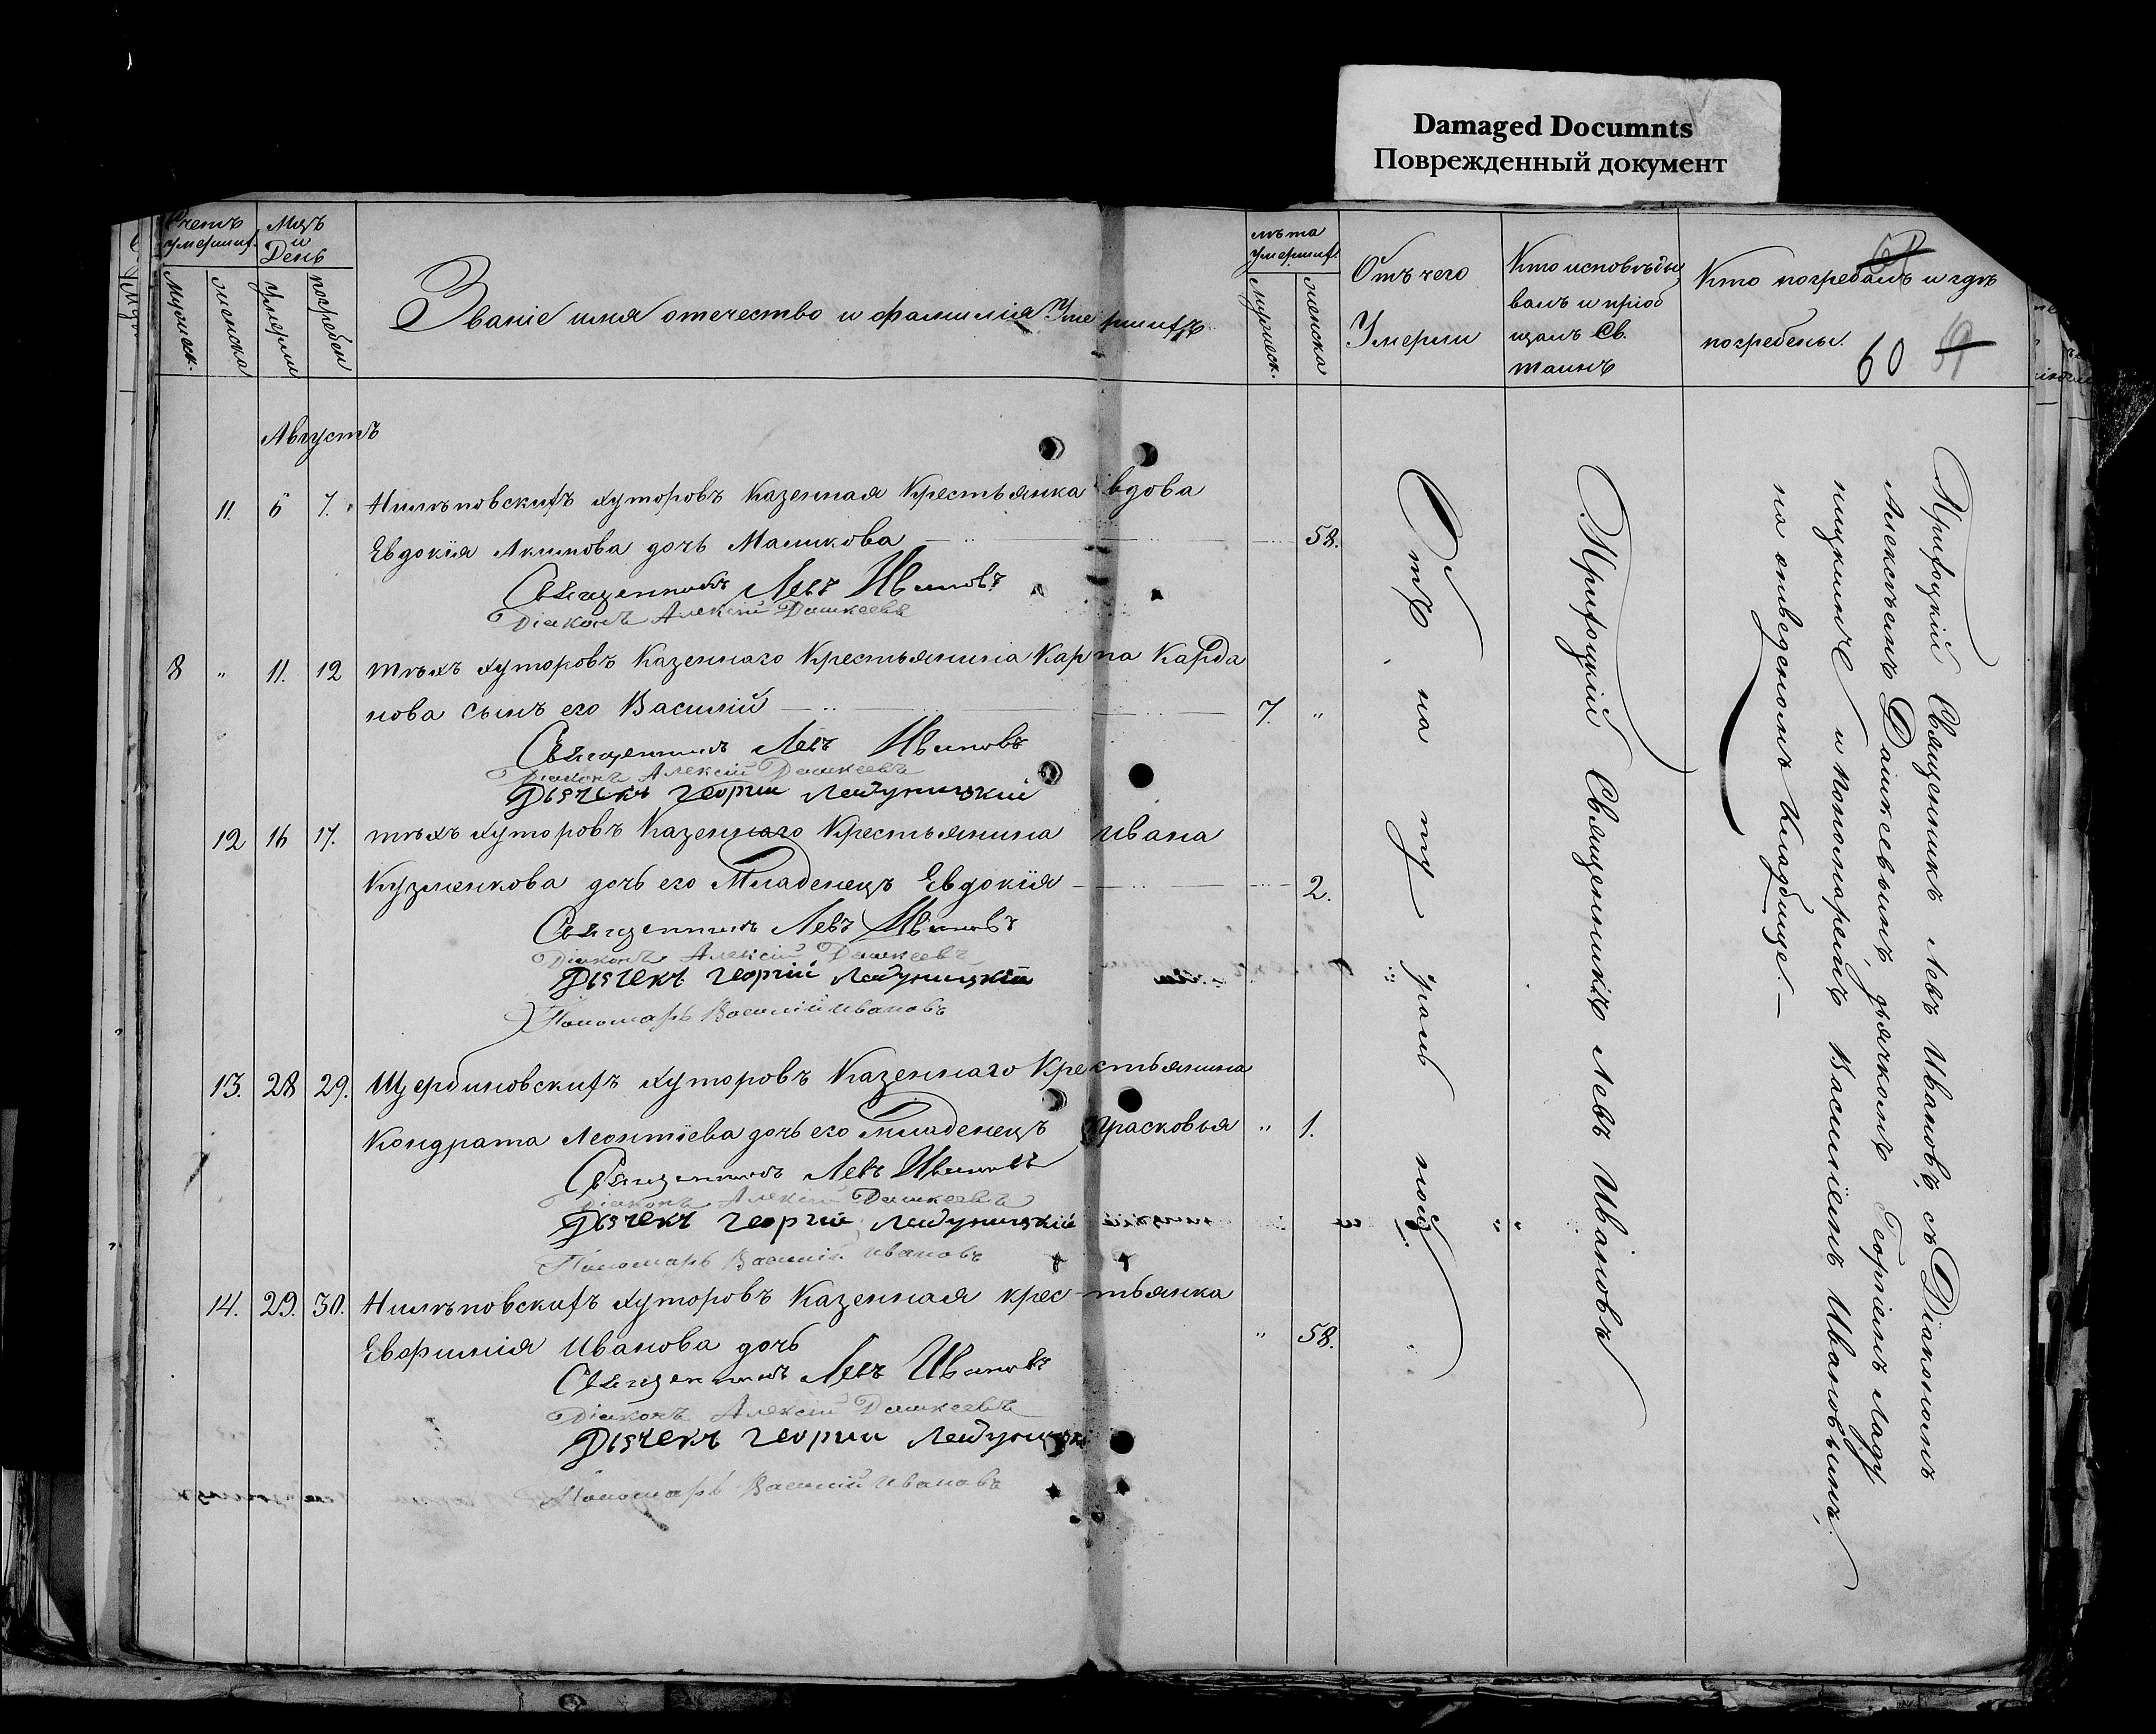 Damaged Documnts
Поврежденный документ
Счетъ умершихъ
Мцъ и День
Званіе имя отечество и фамилія Умершихъ
лѣта умершихъ
Отъ чего Умерли
Кто исповѣды
валъ и пріоб
щалъ Св.
таинъ
Кто погребалъ и гдѣ
погребены.
60
Мужеск.
женска
умерли
погребен
Мужеск.
женска
Августъ
11. 6 7. хуторовъ Казенная Крестьянка вдова
Евдокія Акимова дочь Маликова 58.
Священникъ Левъ Ивановъ
Діаконъ Алексій Дашкеевъ
8 " 11. 12 тѣхъ хуторовъ Казеннаго Крестьянина Карпа Карда
нова сынъ его Василій 7. "
Священникъ Левъ Ивановъ
Діаконъ Алексій Дашкеевъ
Дячекъ Георгий Ладуницкій
12 16 17. тѣхъ хуторовъ Казеннаго Крестьянина Ивана
Кузменкова дочь его Младенецъ Евдокія 2.
Священникъ Левъ Ивановъ
Діаконъ Алексій Дашкеевъ
Дячекъ Георгій Ладуницкій
Пономарь Василій Ивановъ
13. 28 29. Щербиновскихъ хуторовъ Казеннаго Крестьянина
Кондрата Леонтіева дочь его младенецъ Прасковья " 1.
Священникъ Левъ Ивановъ
Діаконъ Алексій Дашкеевъ
Дячекъ Георгій Ладуницкій
Пономарь Василій Ивановъ
14. 29. 30. хуторовъ Казенная крестьянка
Евфимія Иванова дочь " 58.
Священникъ Левъ Ивановъ
Діаконъ Алексій Дашкеевъ
Дячекъ Георгии
Пономарь Василій Ивановъ
Отъ натуральной
Приходскій Священникъ Левъ Ивановъ
Приходскій Священникъ Левъ Ивановъ, съ Діакономъ
Алексѣемъ Дашкевымъ, дьячкомъ Георгіемъ Ладу
ницкимъ и пономаремъ Василіемъ Ивановымъ,
на отведеномъ Кладбище.